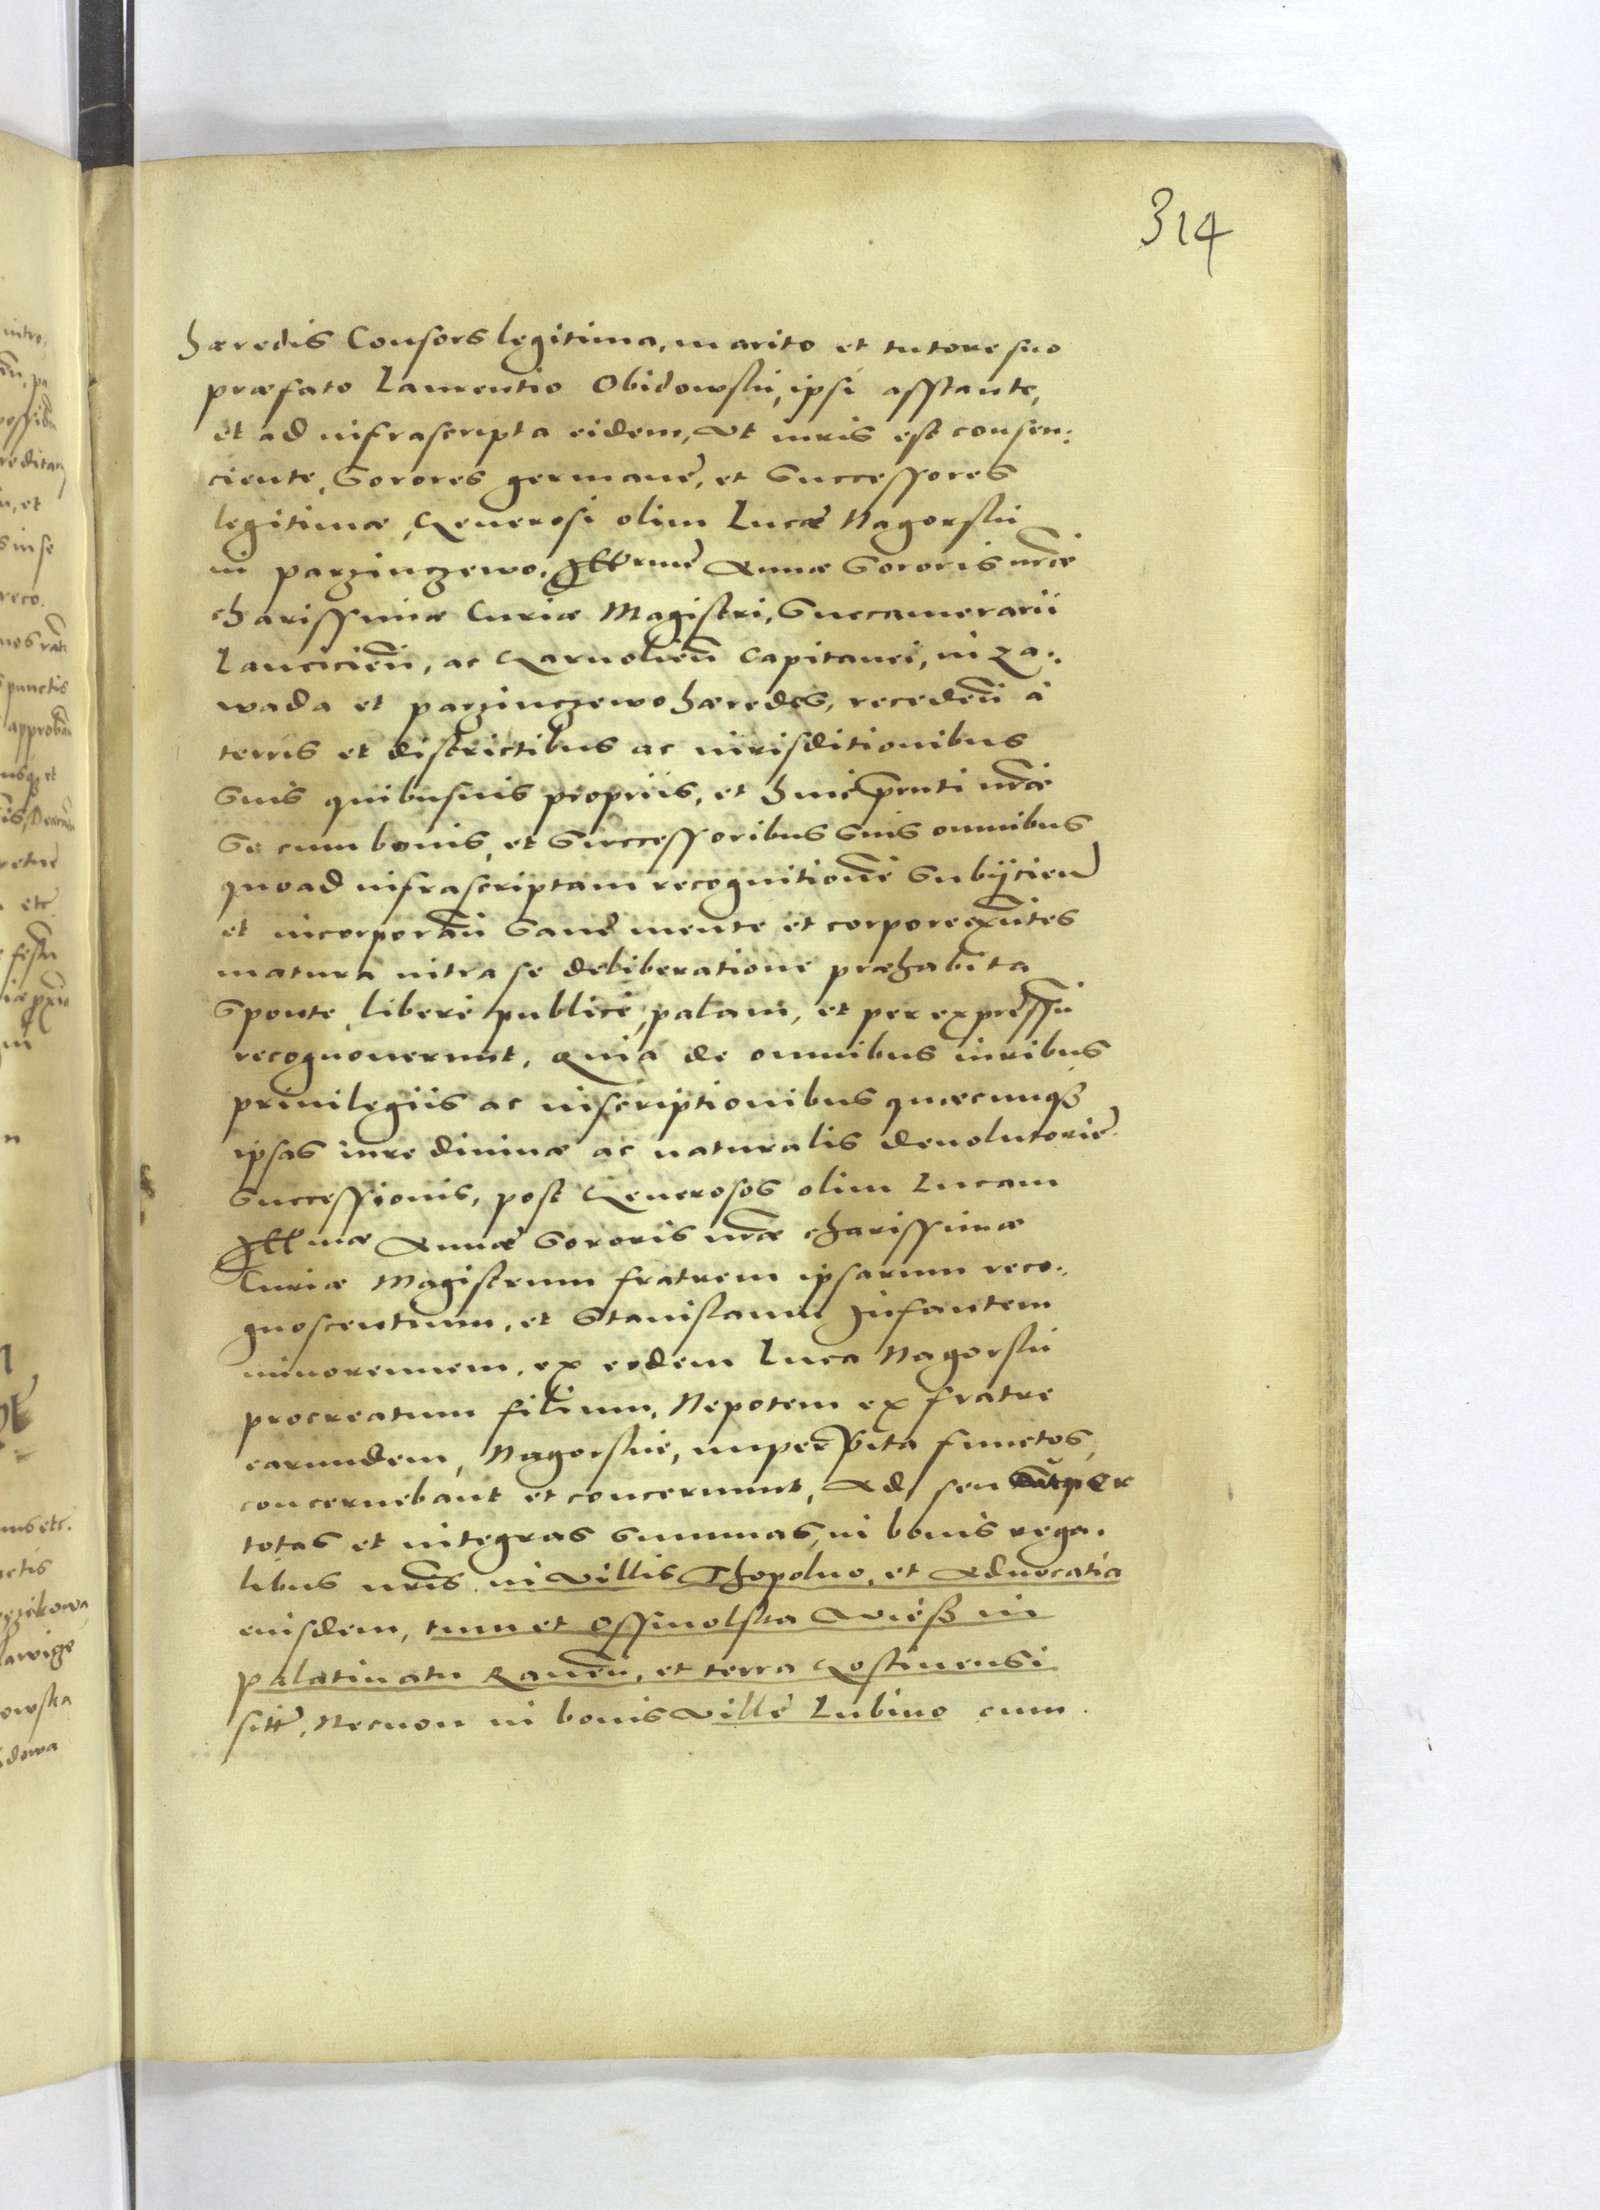 314
hæredis Consors legitima, marito et tutore suo
præfato Laurentio Obidowski, ipsi asstante,
et ad infrascripta eidem, ut iuris est consen:
ciente, Sorores germane, et Successores
legitimæ, Generosi olim Lucæ Nagorski
in parzinczewo, Annæ Sororis nræ
charissimæ Curiæ Magistri, Succamerarii
Lancicien̄, ac Capitanei, in Za:
wada et parzinczewo hæredes, receden̄ à
terris et districtibus ac iurisditionibus
Suis quibusuis propriis, et huic pnti nræ
Se cum bonis, et Successoribus Suis omnibus
quoad infrascriptam recognitionē Subÿcien̄
et incorporan̄ Sanæ mente et corpore exn̄tes
matura intra se deliberatione præhabita
Sponte, liberè publicè, palam, et per expressū
recognouerunt, Quia de omnibus iuribus
priuilegiis ac inscriptionibus quæcunqꝫ
ipsas iure diuinæ ac naturalis deuolutoriè
Successionis, post Generosos olim Lucam
Illmæ Annæ Sororis nræ charissimæ
Curiæ Magistrum fratrem ipsarum reco:
gnoscentium, et Stanislaum Infantem
minorennem, ex eodem Luca Nagorski
procreatum filium, Nepotem ex fratre
earundem, Nagorskie, nuper vita functos,
concernebant et concernunt, Ad seu per
totas et integras Summas, in bonis rega:
libus nris in Villis Thopolno, et Aduocatia
eiusdem, tum et Ossinolska Wieß in
palatinatu Rauen̄, et terra Gostinensi
sitt, Necnon in bonis Villæ Lubino cum